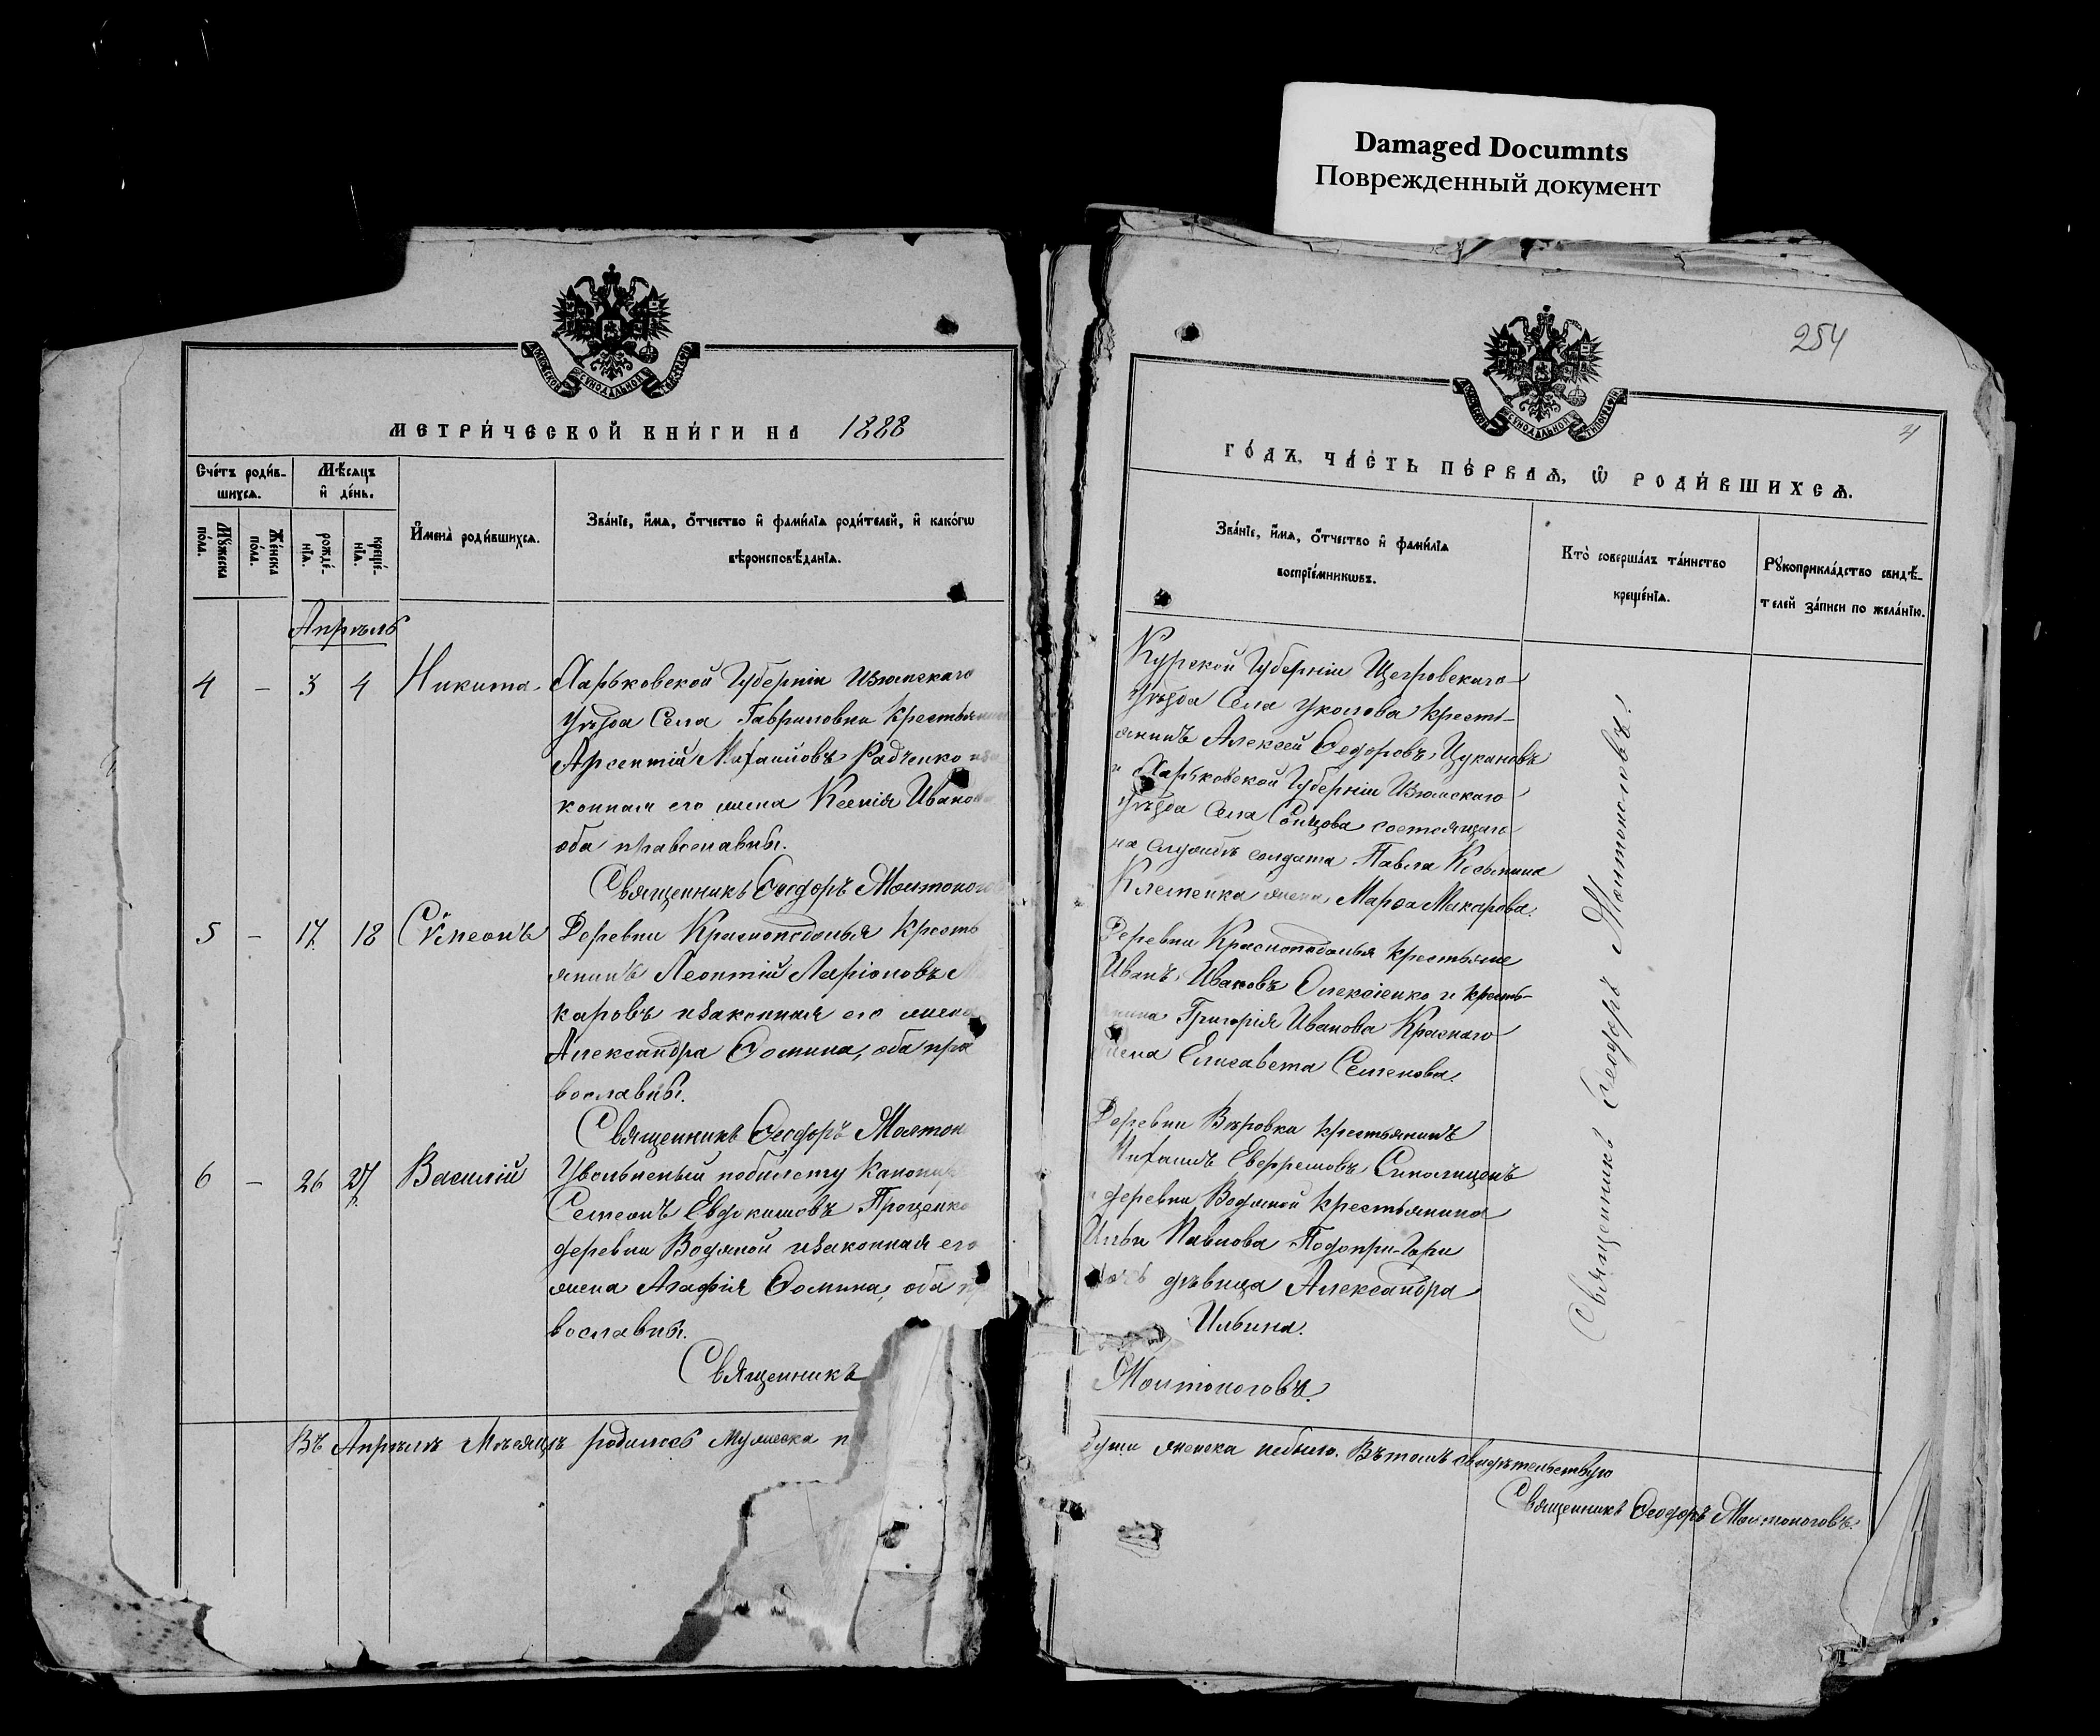 Damaged Documnts
Поврежденный документ
254
4
МЕТРИЧЕСКОЙ КНИГИ НА 1888
ГОДЪ, ЧАСТЬ ПЕРВАЯ, Ѡ РОДИВШИХСЯ.
Счетъ родив-
шихся.
Мѣсяцъ
и день.
Мужеска
пола.
Женска
пола.
рожде-
нія.
креще-
нія.
Имена родившихся.
Званіе, имя, отчество и фамилія родителей, и какогѡ
вѣроисповѣданія.
Званіе, имя, отчество и фамилія
воспріемникѡвъ.
Кто совершалъ таинство
крещенія.
Рукоприкладство свидѣ-
телей записи по желанію.
Апрѣль
4 – 3 4 Никита. Харьковской Губерніи Изюмскаго
Уѣзда Села Гавриловки крестьянинъ
Арсентій Радченко
конная его жена Ксенія Иванова
оба православны.
Священникъ Ѳеодоръ
Курской Губерніи Щегровскаго
Уѣзда Села Уколова крестъ-
янинъ Алексей Ѳедоровъ Цукановъ
и Харьковской Губерніи Изюмскаго
Уѣзда Села состоящаго
на службѣ солдата Павла
жена Марѳа Макарова.
5 – 17 18 Сѵмеонъ Деревни Краснопо́долья Кресть
янинъ Леонтій Ларіоновъ Ма
каровъ изаконная его жена
Александра Ѳомина, оба пра
вославны.
Священникъ Ѳеодоръ
Деревни Красноподолья крестьяне
Иванъ Ивановъ Олексіенко и кресть-
янина Григорія Иванова Краснаго
жена Елисавета Семенова.
6 – 26 27 Василій Увольненый побилету Канонир
Семеонъ Евдокимовъ Проценко
деревни Водяной изаконная его
жена Агафія Ѳомина, оба пр
вославны.
Священникъ
Деревни Вѣровки крестьянинъ
деревни Водяной крестьянина
Ильи Павлова Подопри-Гори
дочь дѣвица Александра
Ильина.
Моитоноговъ.
Священникъ Ѳеодоръ Моитоноговъ.
Въ Апрѣлѣ Мѣсяцѣ родилось мужеска п
души женска небыло. Вътомъ свидѣтельствую
Священникъ Ѳеодоръ Моитоноговъ.